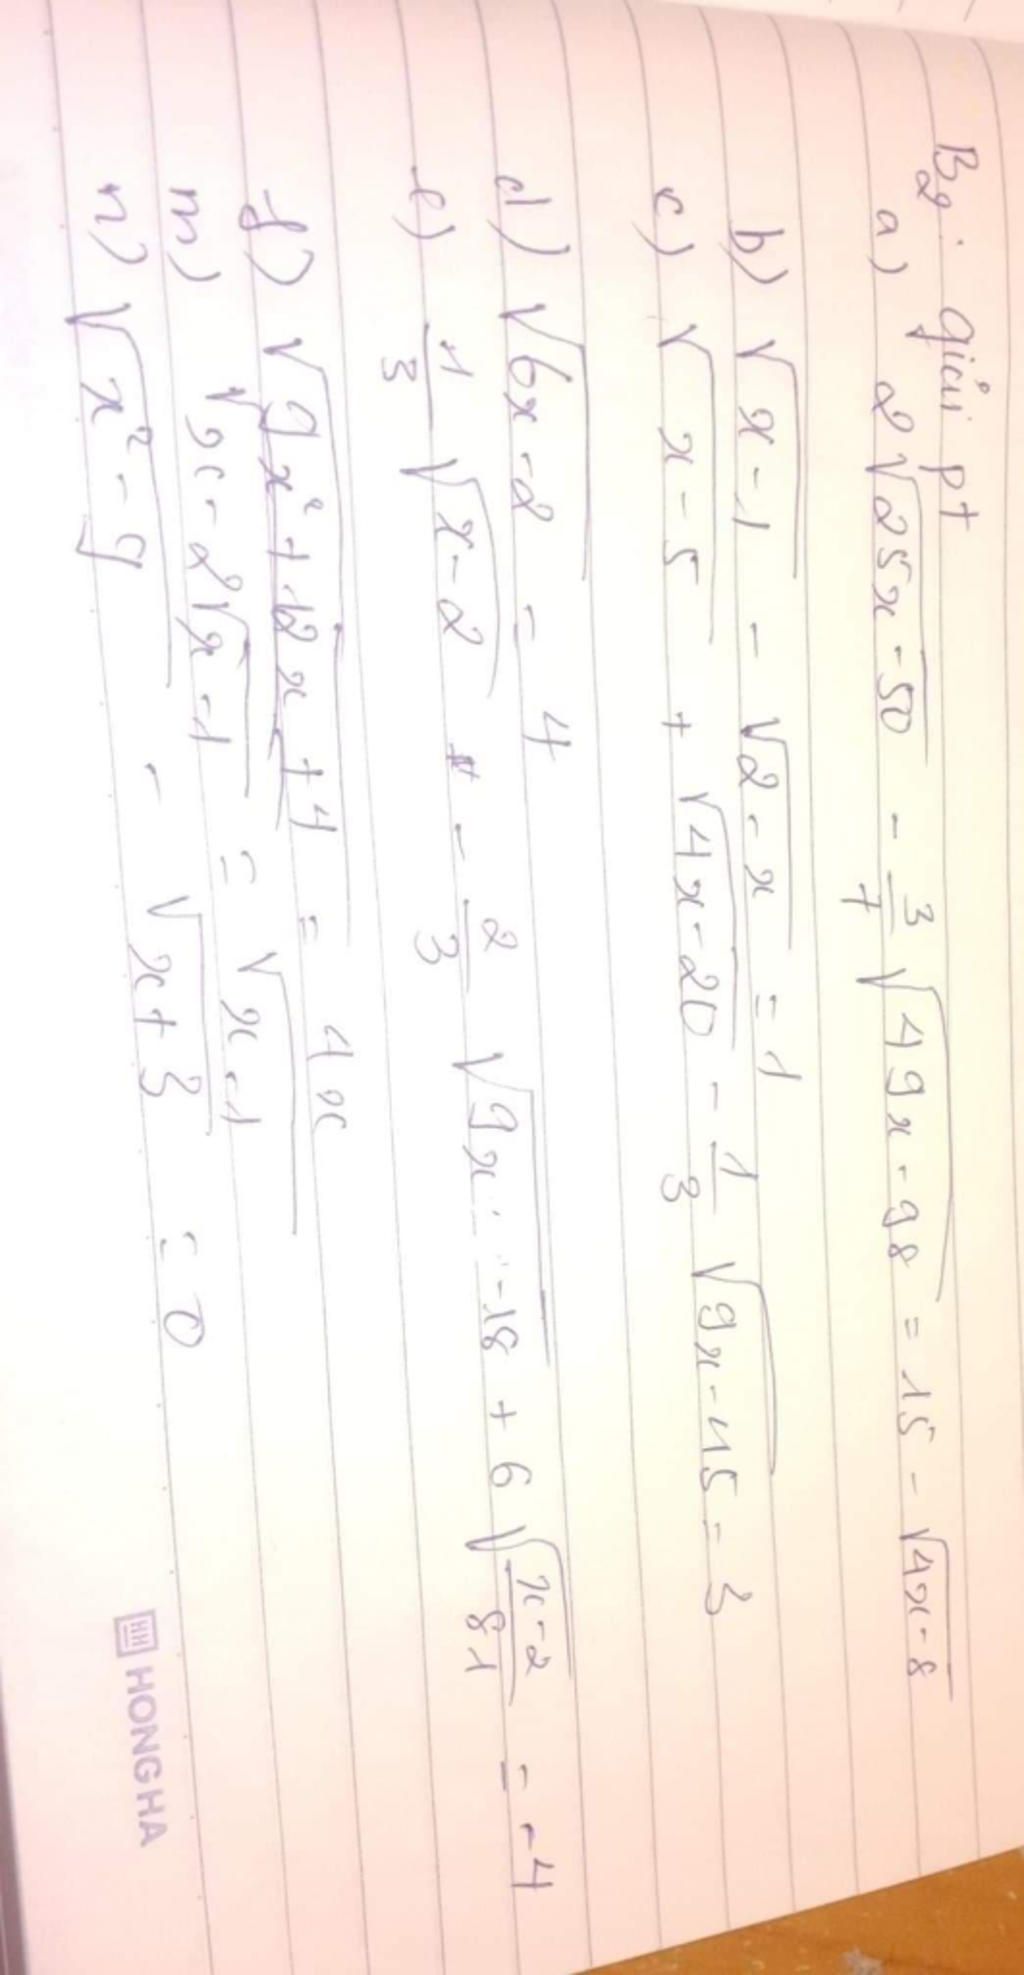 B2: giải pt
a) 2√25x-50 - 3/7 √49x-98 = 15 - √4x-8
b) √x-1 - √2-x = 1
c) √x-5 + √4x-20 - 1/3 √9x-45 = 3
d) √6x-2 = 4
e) 1/3 √x-2 - 2/3 √9x-18 + 6 √x-2/81 = -4
f) √9x²+12x+4 = 4x
m) √x-2√x-1 = √x-1
n) √x²-9 - √x+3 = 0
HH HONG HA